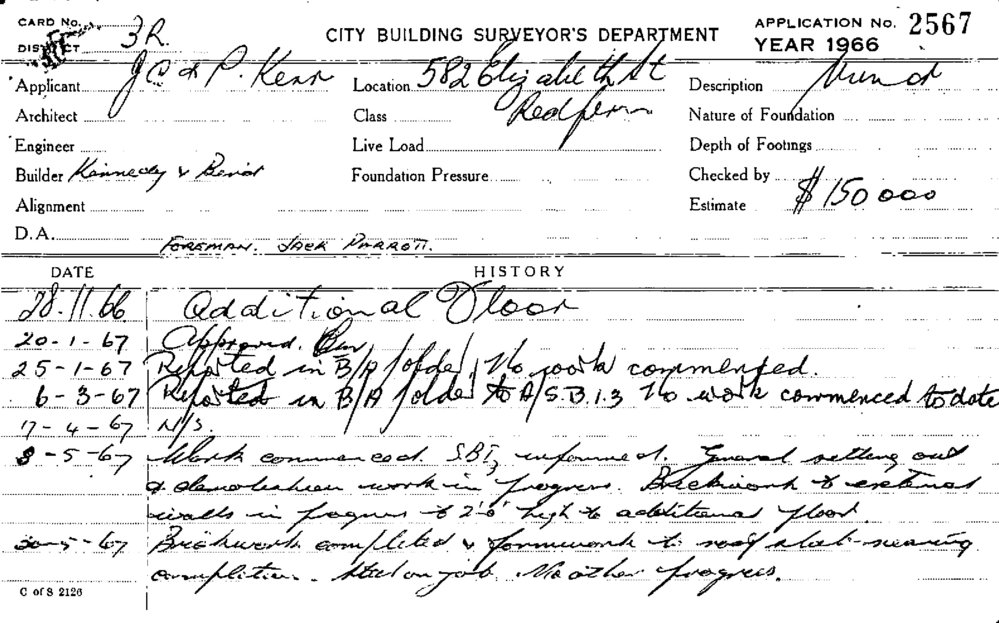 CARD No. CITY BUILDING SURVEYOR'S DEPARTMENT APPLICATION No. 2567
DISTRICT 3R. YEAR 1966
Applicant J C & P. Kerr Location 582 Elizabeth St Description
Architect Class Redfern Nature of Foundation
Engineer Live Load Depth of Footings
Builder Kennedy & Foundation Pressure Checked by
Alignment Estimate $150 000
D.A. FOREMAN. JACK PARROTT.
DATE HISTORY
28.11.66 Additional Floor
20-1-67 Approved.
25-1-67 Reported in B/A folder, No work commenced.
6-3-67 Reported in B/A folder to A/S.B.I.3 No work commenced to date
17-4-67 N/S.
3-5-67 Work commenced. S.B.I.3 informed. General setting out
& demolition work in progress. Brickwork to external
walls in progress to 2'6" high to additional floor.
30-5-67 Brickwork completed & formwork to roof slab nearing
completion. Steel on job. No other progress.
C of S 2126